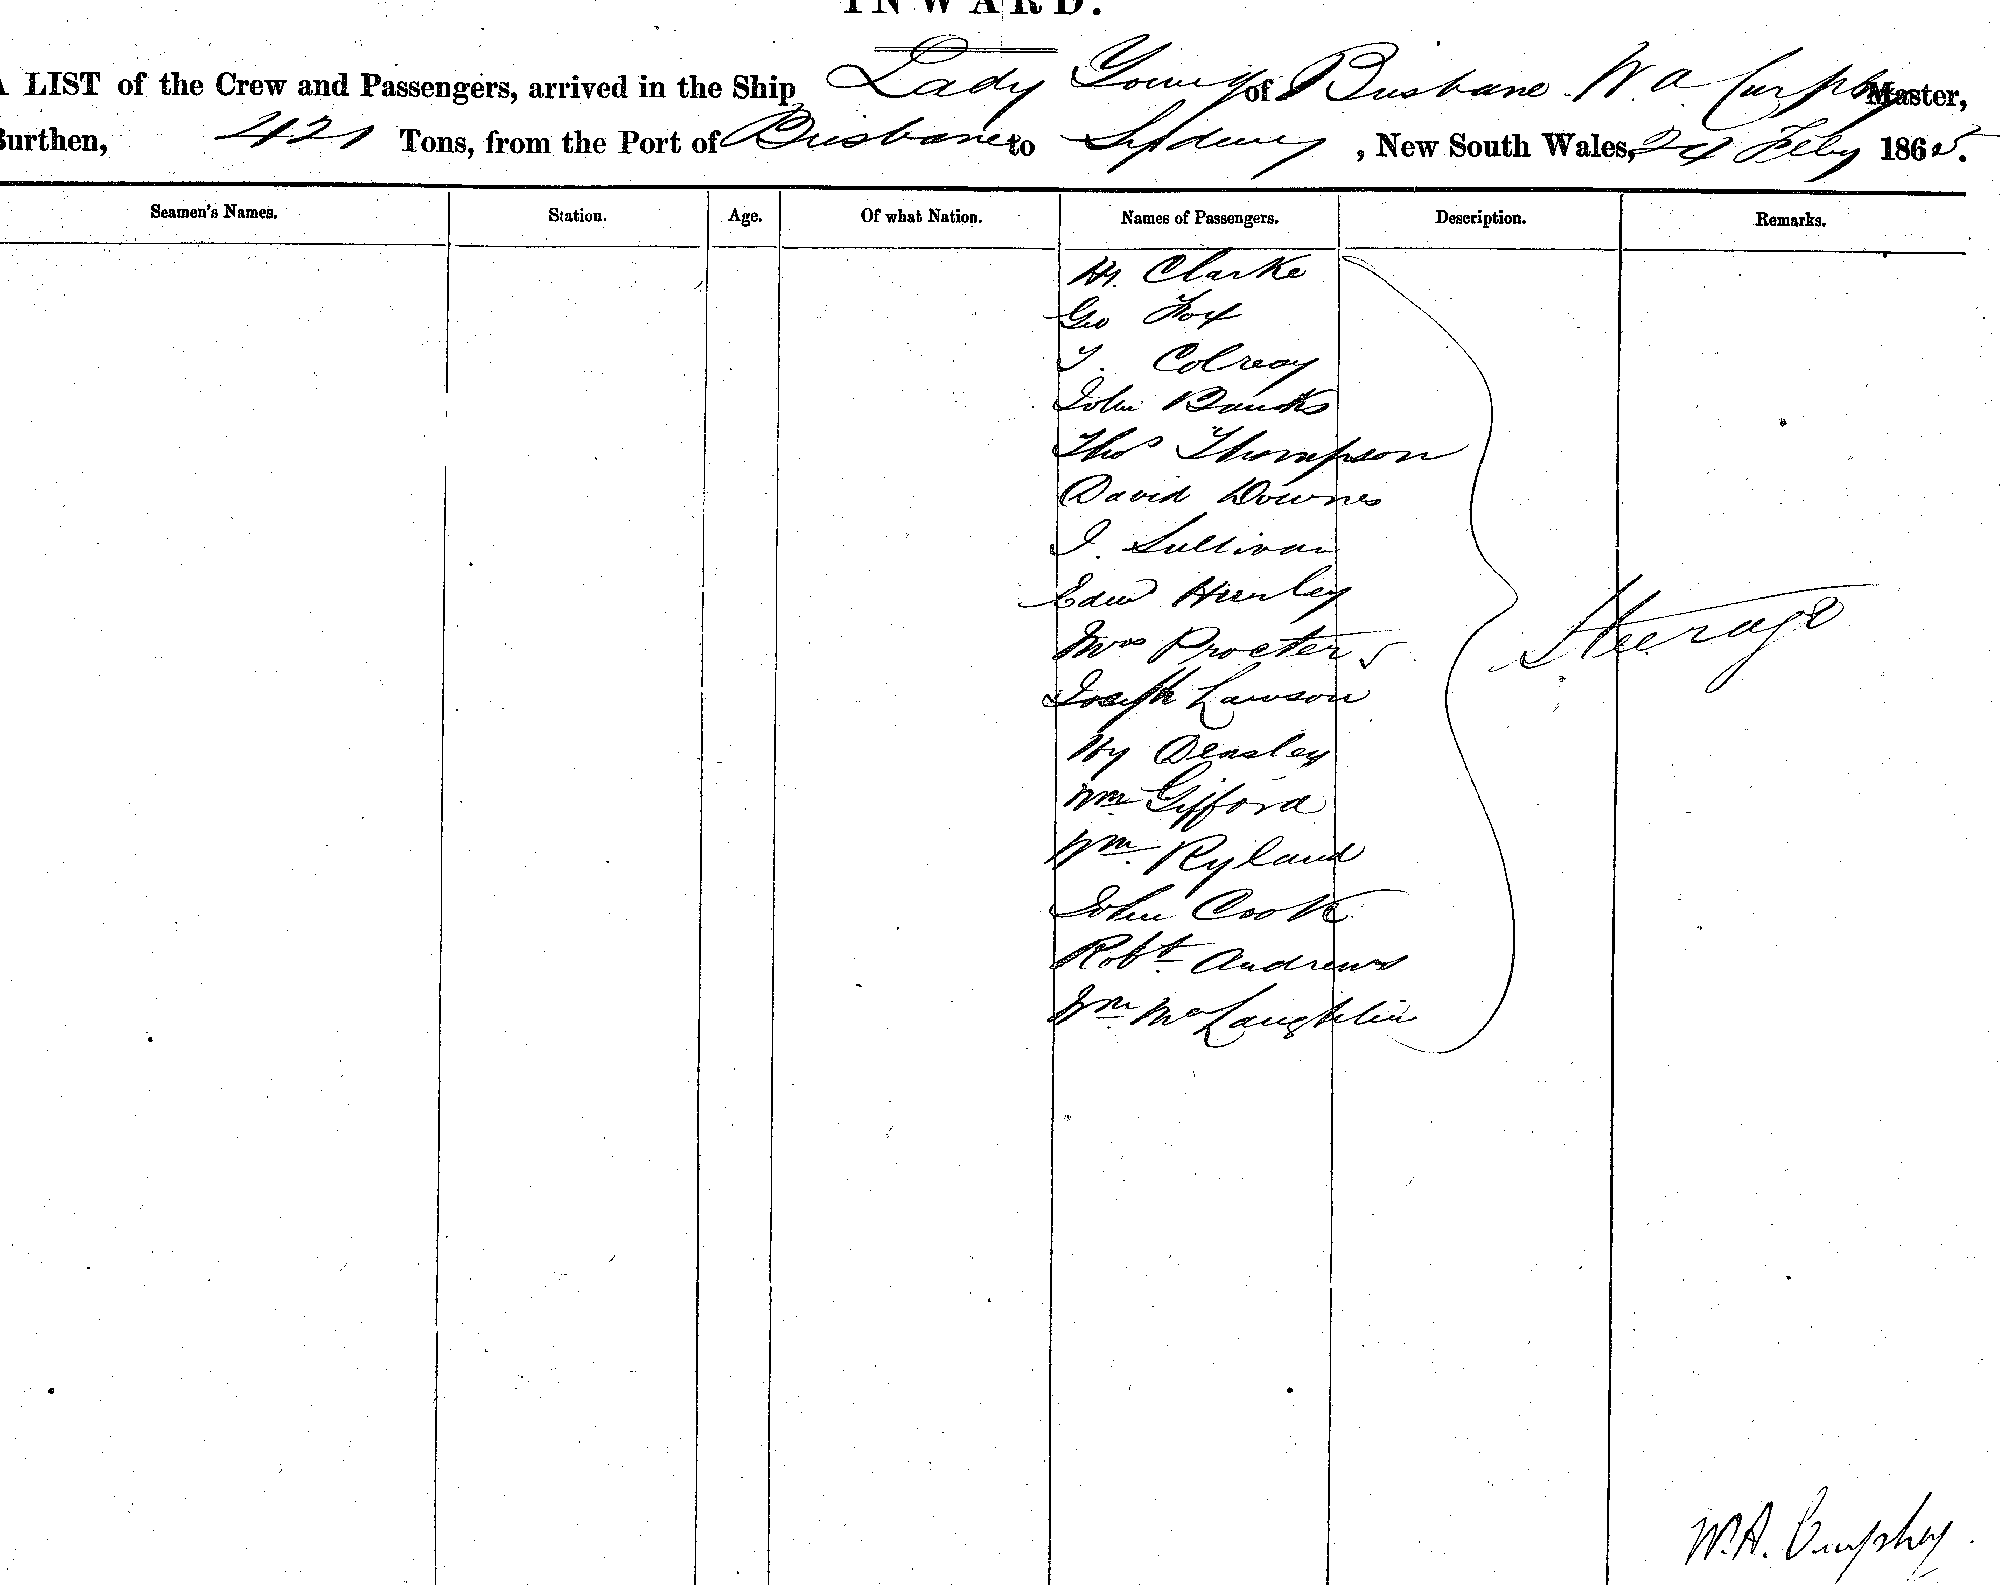 INWARD.
A LIST of the Crew and Passengers, arrived in the Ship Lady Young of Brisbane W. A. Curphey Master,
Burthen, 421 Tons, from the Port of Brisbane to Sydney, New South Wales, 24 Feby 1865.
Seamen's Names. Station. Age. Of what Nation. Names of Passengers. Description. Remarks.
Hy. Clarke
Geo Fox
T. Colreay
John Banks
Thos Thompson
David Downes
J. Sullivan
Edwd Hurley
Mrs Procter
Steerage
Joseph Lawson
Hy Deasley
Wm Gifford
Wm. Ryland
John Cook
Robt. Andrews
Wm McLaughlin
W. A. Curphey